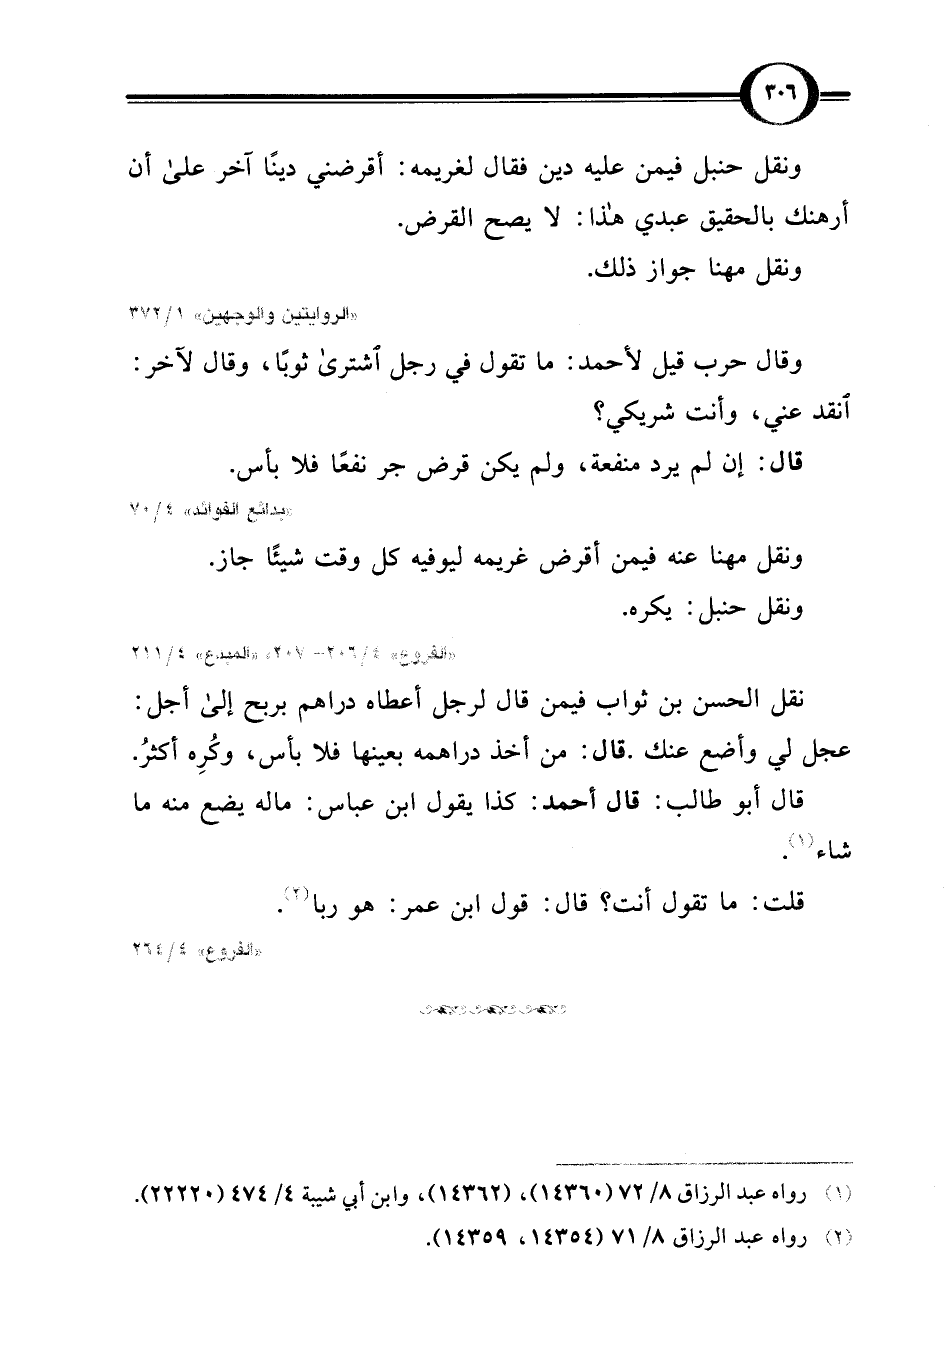 ٣٠٦
ونقل حنبل فيمن عليه دين فقال لغريمه: أقرضني دينًا آخر علىٰ أن
أرهنك بالحقيق عبدي هٰذا: لا يصح القرض.
ونقل مهنا جواز ذلك.
«الروايتين والوجهين» ١/ ٣٧٢
وقال حرب قيل لأحمد: ما تقول في رجل ٱشترىٰ ثوبًا، وقال لآخر:
ٱنقد عني، وأنت شريكي؟
قال: إن لم يرد منفعة، ولم يكن قرض جر نفعًا فلا بأس.
«بدائع الفوائد» ٤/ ٧٠
ونقل مهنا عنه فيمن أقرض غريمه ليوفيه كل وقت شيئًا جاز.
ونقل حنبل: يكره.
«الفروع» ٤/ ٢٠٦- ٢٠٧، «المبدع» ٤/ ٢١١
نقل الحسن بن ثواب فيمن قال لرجل أعطاه دراهم بربح إلىٰ أجل:
عجل لي وأضع عنك .قال: من أخذ دراهمه بعينها فلا بأس، وكُرِه أكثرُ.
قال أبو طالب: قال أحمد: كذا يقول ابن عباس: ماله يضع منه ما
شاء(١).
قلت: ما تقول أنت؟ قال: قول ابن عمر: هو ربا(٢).
«الفروع» ٤/ ٢٦٤
(١) رواه عبد الرزاق ٨/ ٧٢ (١٤٣٦٠)، (١٤٣٦٢)، وابن أبي شيبة ٤/ ٤٧٤ (٢٢٢٢٠).
(٢) رواه عبد الرزاق ٨/ ٧١ (١٤٣٥٤، ١٤٣٥٩).